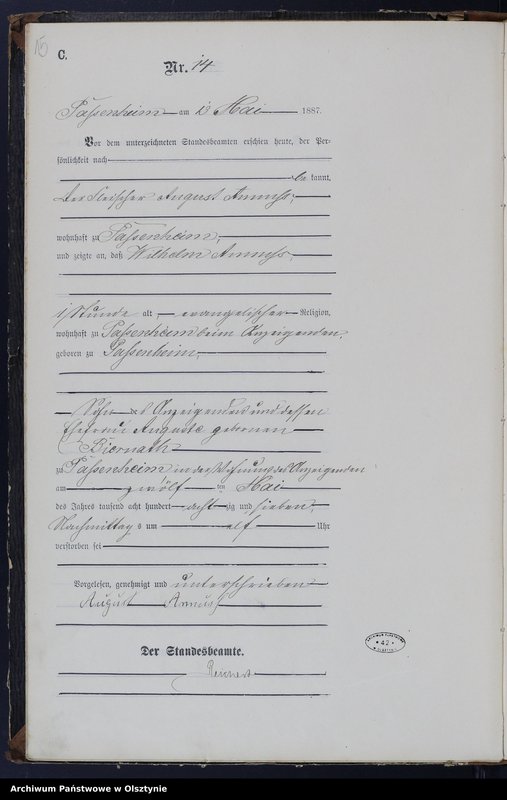 15
C.
Nr. 14
Passenheim am 13 Mai 1887.
Vor dem unterzeichneten Standesbeamten erschien heute, der Per-
sönlichkeit nach
be kannt,
der Fleischer August Annuss,
wohnhaft zu Passenheim,
und zeigte an, daß Wilhelm Annuss,
1/ Stunde alt evangelischer Religion,
wohnhaft zu Passenheim beim Anzeigenden,
geboren zu Passenheim,
Sohn des Anzeigenden und dessen
Ehefrau Auguste gebornen
Biernath
zu Passenheim in der Wohnung des Anzeigenden
am zwölf ten Mai
des Jahres tausend acht hundert acht zig und sieben,
Nachmittag s um elf Uhr
verstorben sei
Vorgelesen, genehmigt und unterschrieben
August Annuss
Der Standesbeamte.
ARCHIWUM PAŃSTWOWE
* 42 *
Archiwum Państwowe w Olsztynie